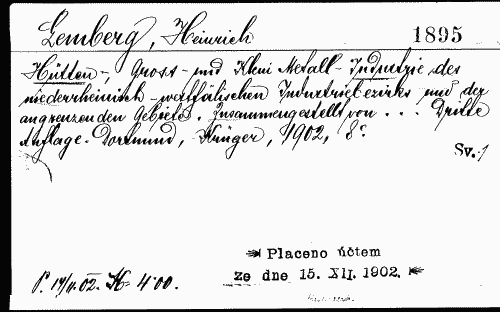 Lemberg, Heinrich 1895
Hütten-, Gross- und Klein Metall-Industrie des
niederrheinisch-westfälischen Industriebezirks und der
angrenzenden Gebiete. Zusammengestellt von ... Dritte
Auflage. Dortmund, Krüger, 1902, 8°
Sv. 1
Placeno účtem
ze dne 15. XII. 1902.
K 4·00.